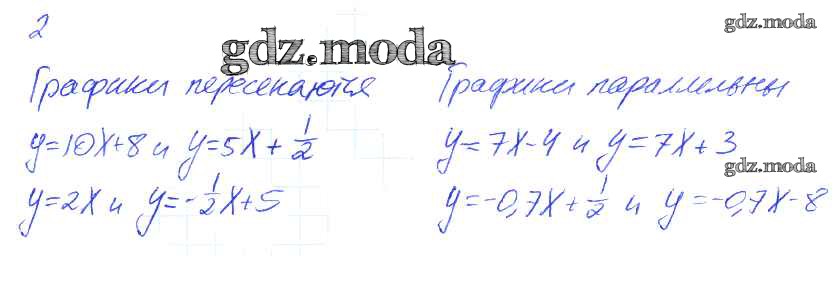 2
gdz.moda
gdz.moda
Графики пересекаются
y=10x+8 и y=5x+1/2
y=2x и y=-1/2x+5
Графики параллельны
y=7x-4 и y=7x+3
gdz.moda
y=-0,7x+1/2 и y=-0,7x-8